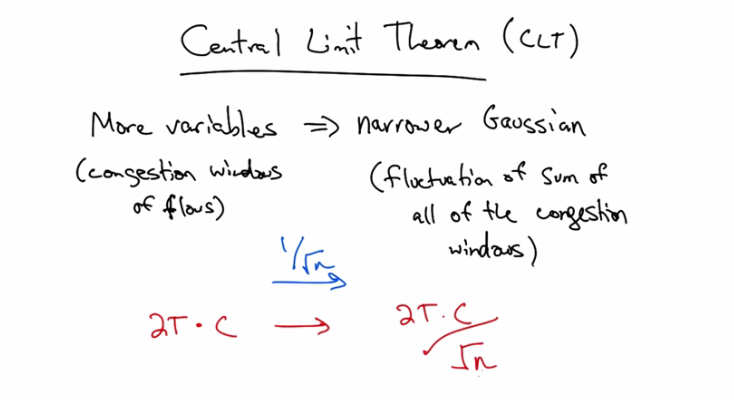 Central Limit Theorem (CLT)
More variables => narrower Gaussian
(congestion windows
of flows)
(fluctuation of sum of
all of the congestion
windows)
1/√n
2T · C → 2T · C / √n